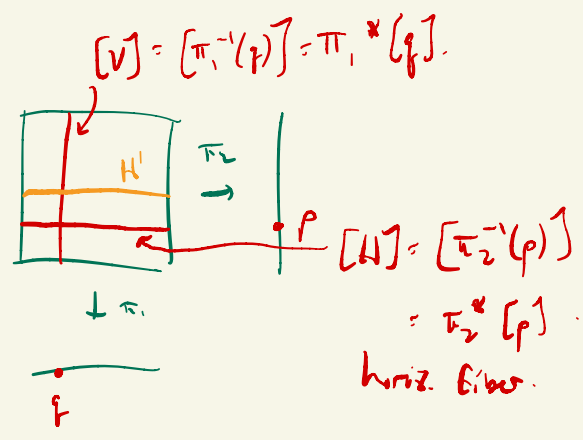 [V] = [π₁⁻¹(q)] = π₁*[q].
H'
π₂
p
[H] = [π₂⁻¹(p)]
= π₂*[p].
horiz. fiber.
π₁
q